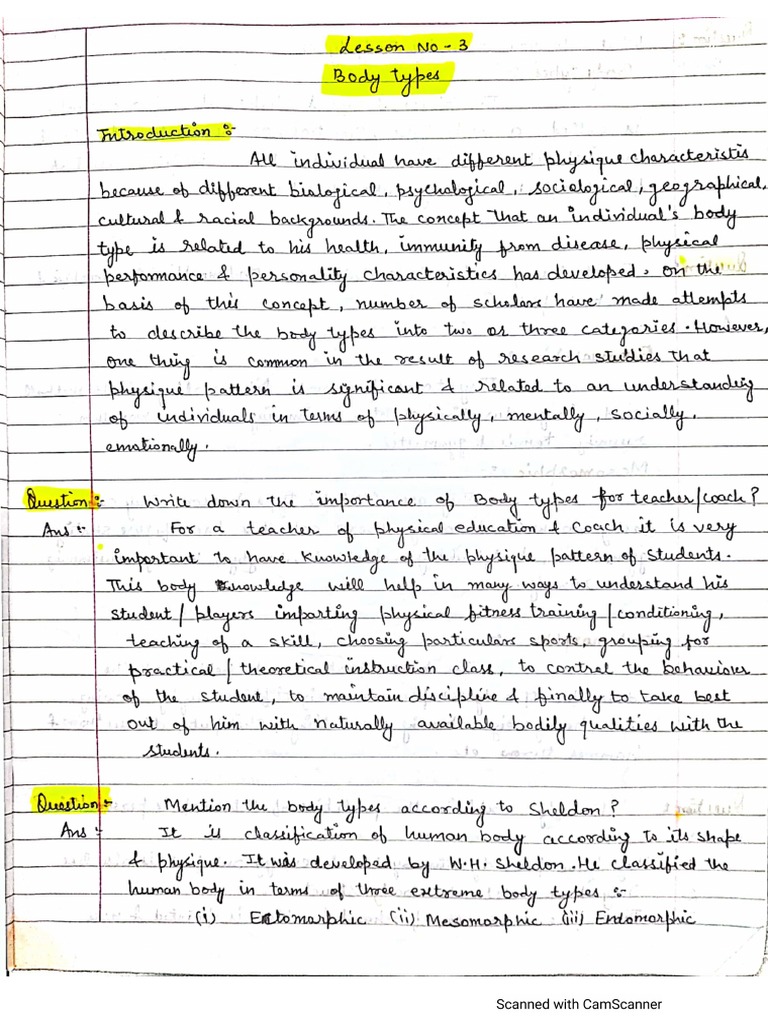 Lesson No - 3
Body types
Introduction :-
All individual have different physique characteristis
because of different biological, psychological, sociological, geographical,
cultural & racial backgrounds. The concept that an individual's body
type is related to his health, immunity from disease, physical
performance & personality characteristics has developed. on the
basis of this concept, number of scholars have made attempts
to describe the body types into two or three categories. However,
one thing is common in the result of research studies that
physique pattern is significant & related to an understanding
of individuals in terms of physically, mentally, socially,
emationally.
Question :- Write down the importance of Body types for teacher/coach?
Ans :- For a teacher of physical education & Coach it is very
important to have knowledge of the physique pattern of students.
This body knowledge will help in many ways to understand his
student/players imparting physical fitness training/conditioning,
teaching of a skill, choosing particulars sports, grouping for
practical/theoretical instruction class, to control the behaviour
of the student, to maintain discipline & finally to take best
out of him with naturally available bodily qualities with the
students.
Question :- Mention the body types according to Sheldon?
Ans :- It is classification of human body according to its shape
& physique. It was developed by W.H. Sheldon. He classified the
human body in terms of three extreme body types :-
(i) Ectomorphic (ii) Mesomorphic (iii) Endomorphic
Scanned with CamScanner